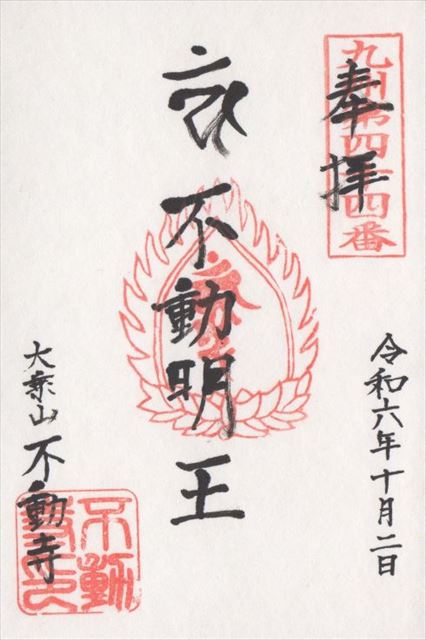 奉拝
九州第四十四番
令和六年十月二日
不動明王
大乗山 不動寺
不動寺印